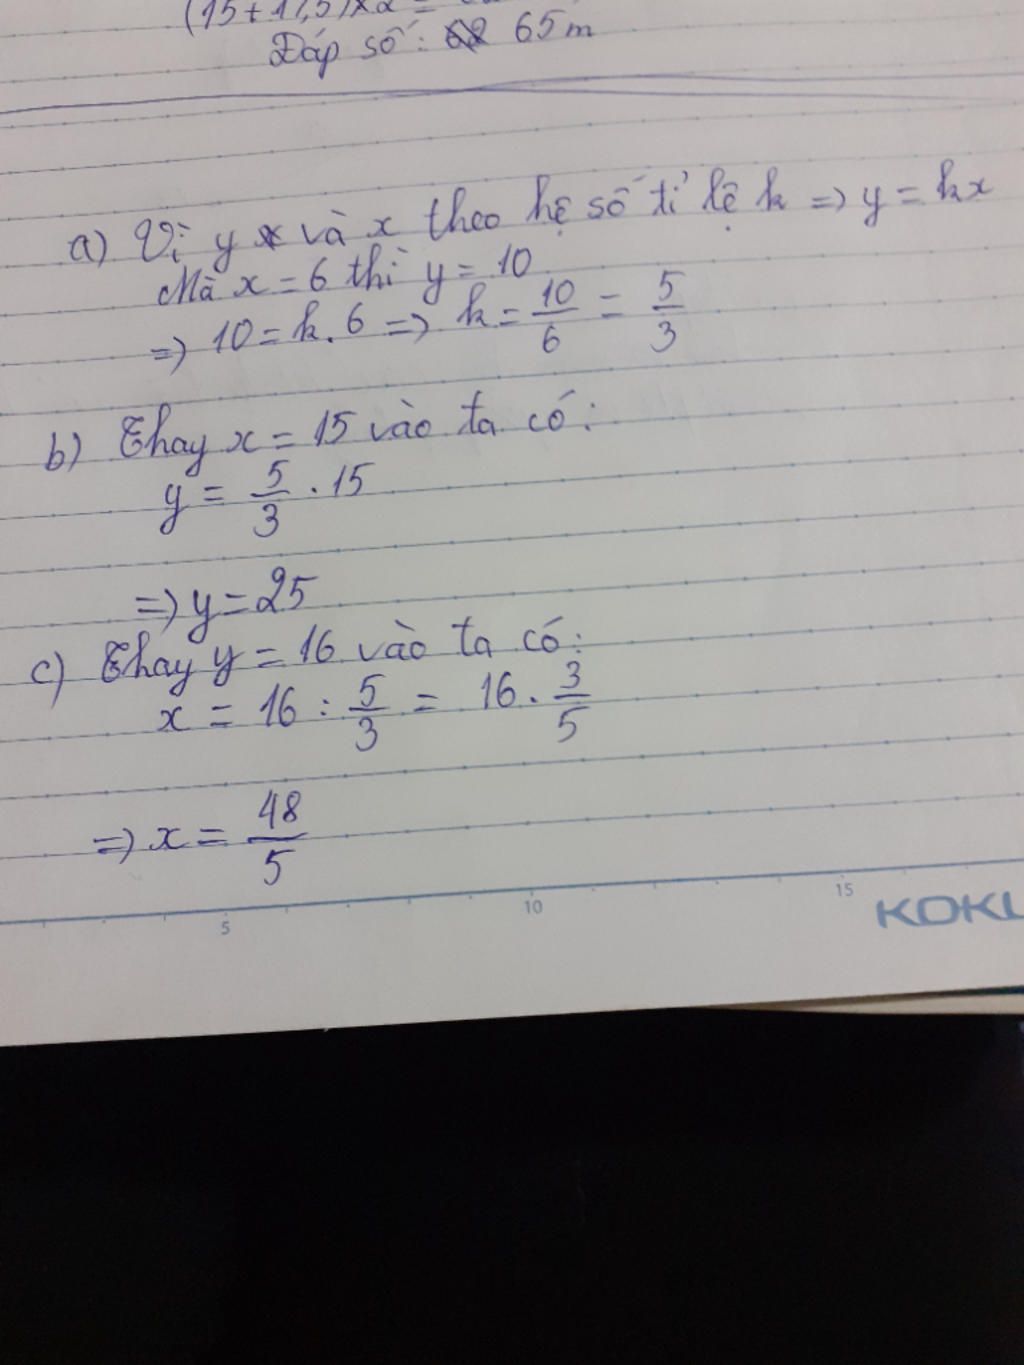 (15+17,5)x2 =
Đáp số: 65m
a) Vì y và x theo hệ số tỉ lệ k => y = kx
Mà x = 6 thì y = 10
=> 10 = k . 6 => k = 10/6 = 5/3
b) Thay x = 15 vào ta có:
y = 5/3 . 15
=> y = 25
c) Thay y = 16 vào ta có:
x = 16 : 5/3 = 16 . 3/5
=> x = 48/5
5 10 15
KOKU